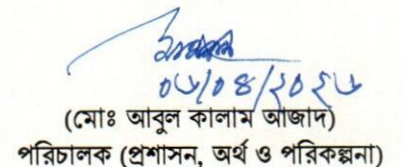 ০৬/০৪/২০২৬
(মোঃ আবুল কালাম আজাদ)
পরিচালক (প্রশাসন, অর্থ ও পরিকল্পনা)